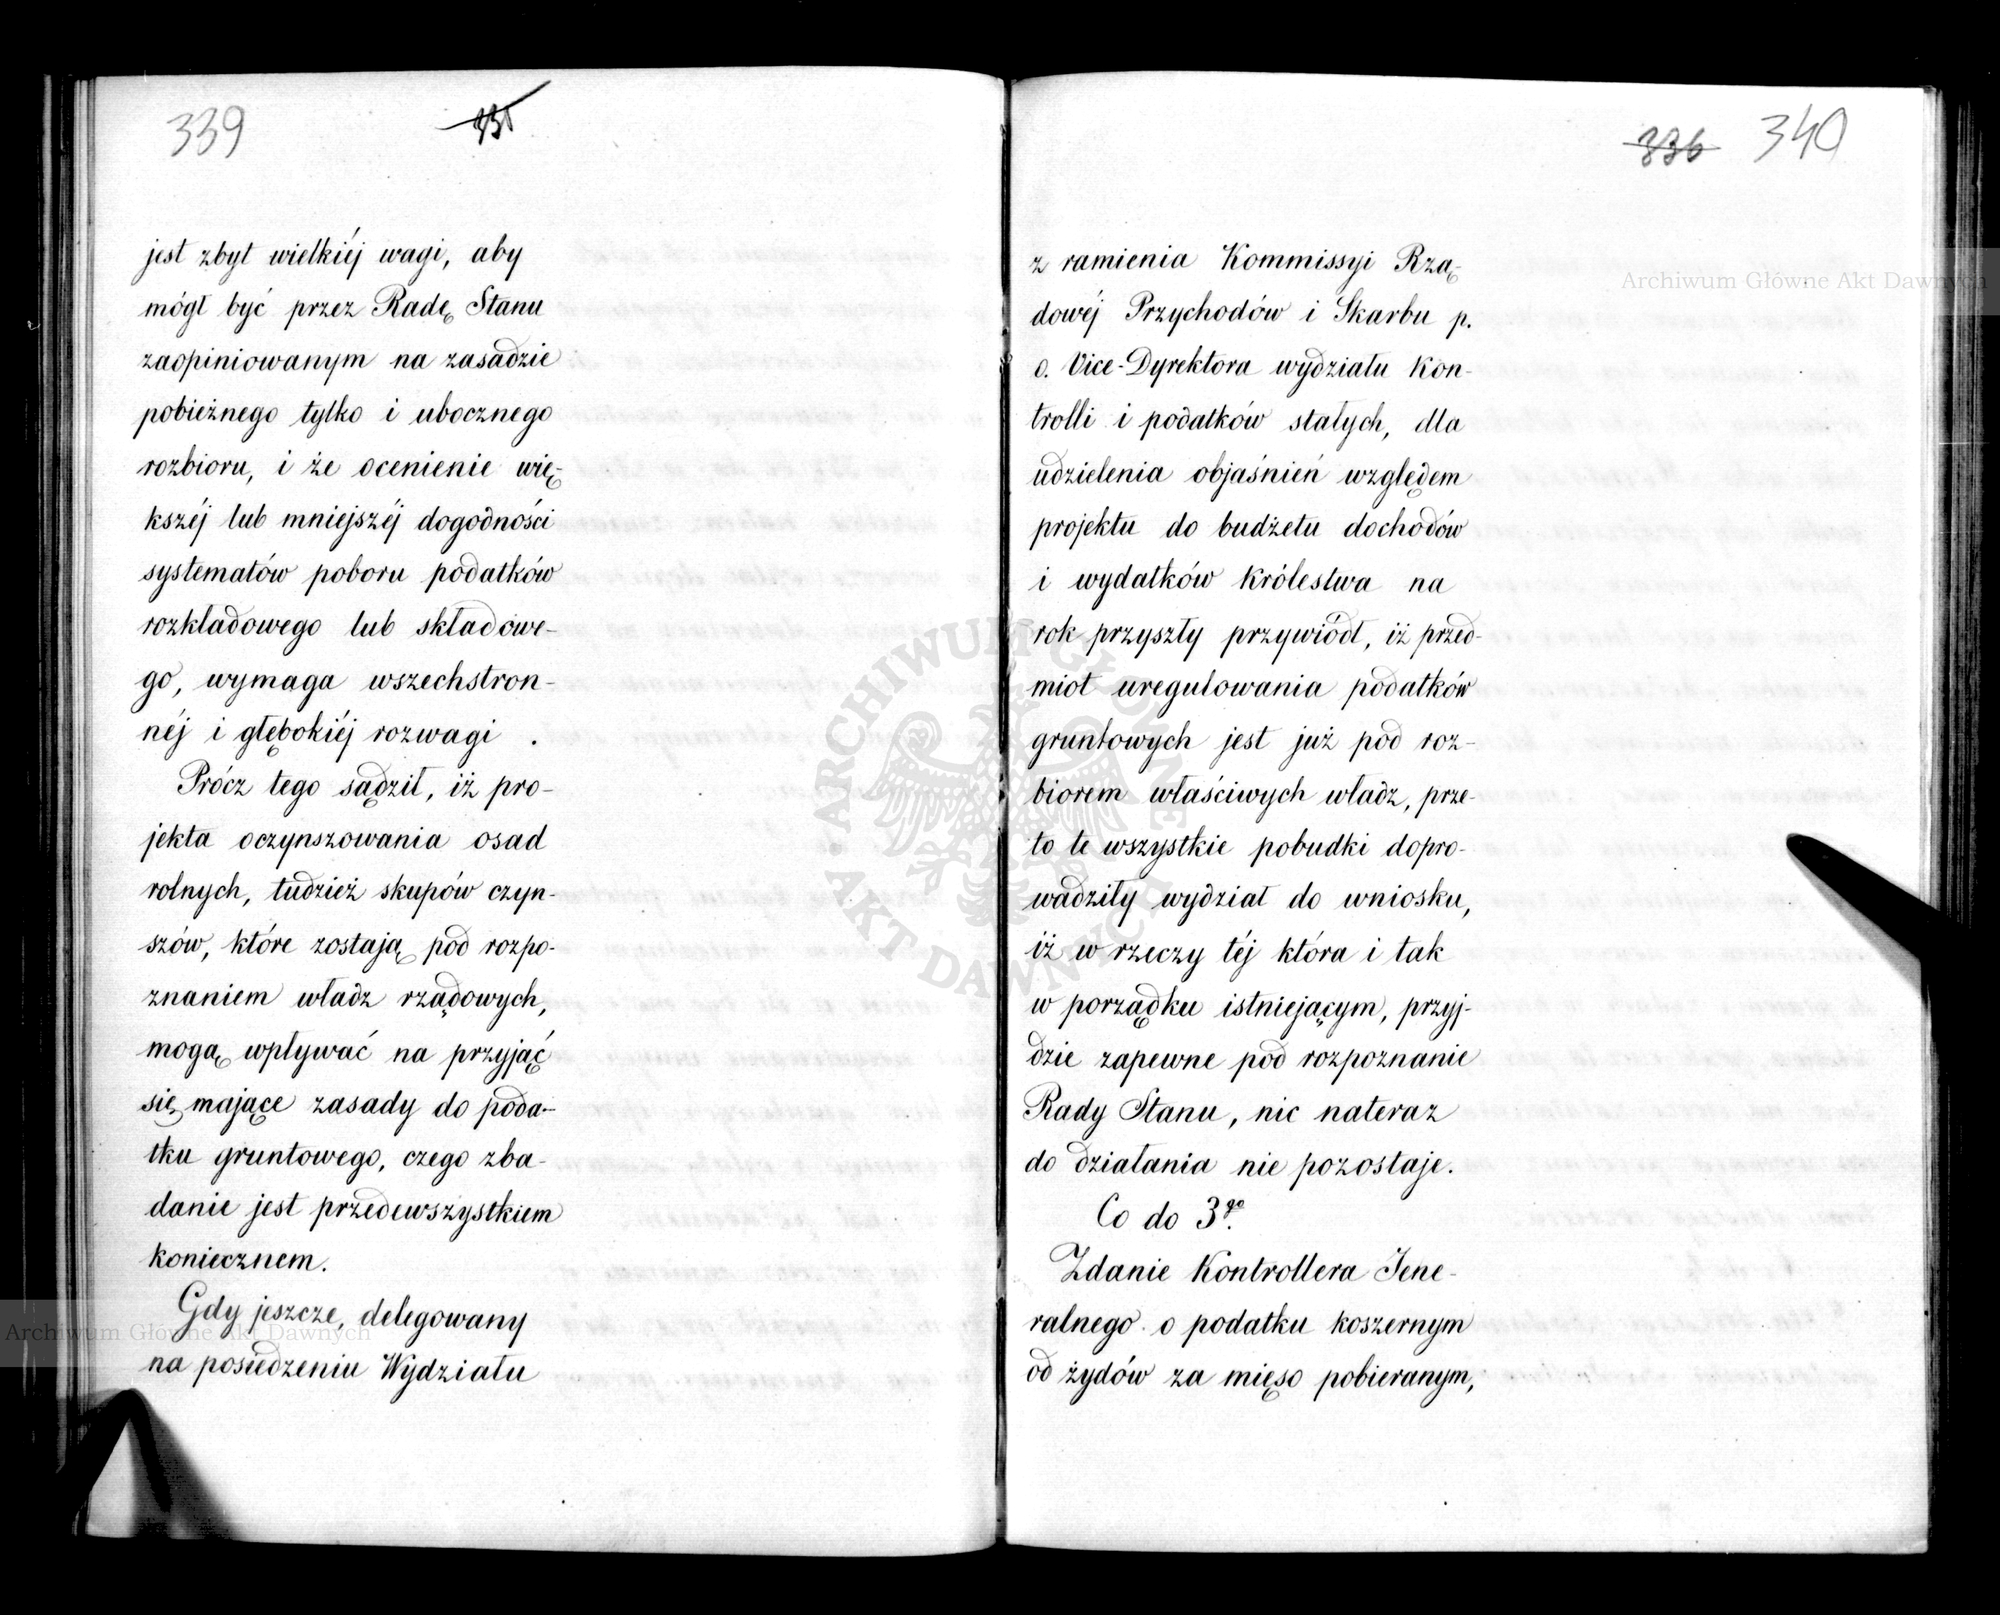 339
335
jest zbyt wielkiéj wagi, aby
mógł być przez Radę Stanu
zaopiniowanym na zasadzie
pobieżnego tylko i ubocznego
rozbioru, i że ocenienie wię-
kszéj lub mniejszéj dogodności
systematów poboru podatków
rozkładowego lub składowe-
go, wymaga wszechstron-
néj i głębokiéj rozwagi .
Prócz tego sądził, iż pro-
jekta oczynszowania osad
rolnych, tudzież skupów czyn-
szów, które zostają pod rozpo-
znaniem władz rządowych,
mogą wpływać na przyjąć
się mające zasady do poda-
tku gruntowego, czego zba-
danie jest przedewszystkiem
koniecznem.
Gdy jeszcze, delegowany
na posiedzeniu Wydziału
336 340
z ramienia Kommissyi Rzą-
dowéj Przychodów i Skarbu p.
o. Vice-Dyrektora wydziału Kon-
trolli i podatków stałych, dla
udzielenia objaśnień względem
projektu do budżetu dochodów
i wydatków Królestwa na
rok przyszły przywiódł, iż przed-
miot uregulowania podatków
gruntowych jest już pod roz-
biorem właściwych władz, prze-
to te wszystkie pobudki dopro-
wadziły wydział do wniosku,
iż w rzeczy téj która i tak
w porządku istniejącym, przyj-
dzie zapewne pod rozpoznanie
Rady Stanu, nic nateraz
do działania nie pozostaje.
Co do 3go.
Zdanie Kontrollera Jene-
ralnego o podatku koszernym
od żydów za mięso pobieranym,
Archiwum Główne Akt Dawnych
Archiwum Główne Akt Dawnych
ARCHIWUM GŁÓWNE
AKT DAWNYCH